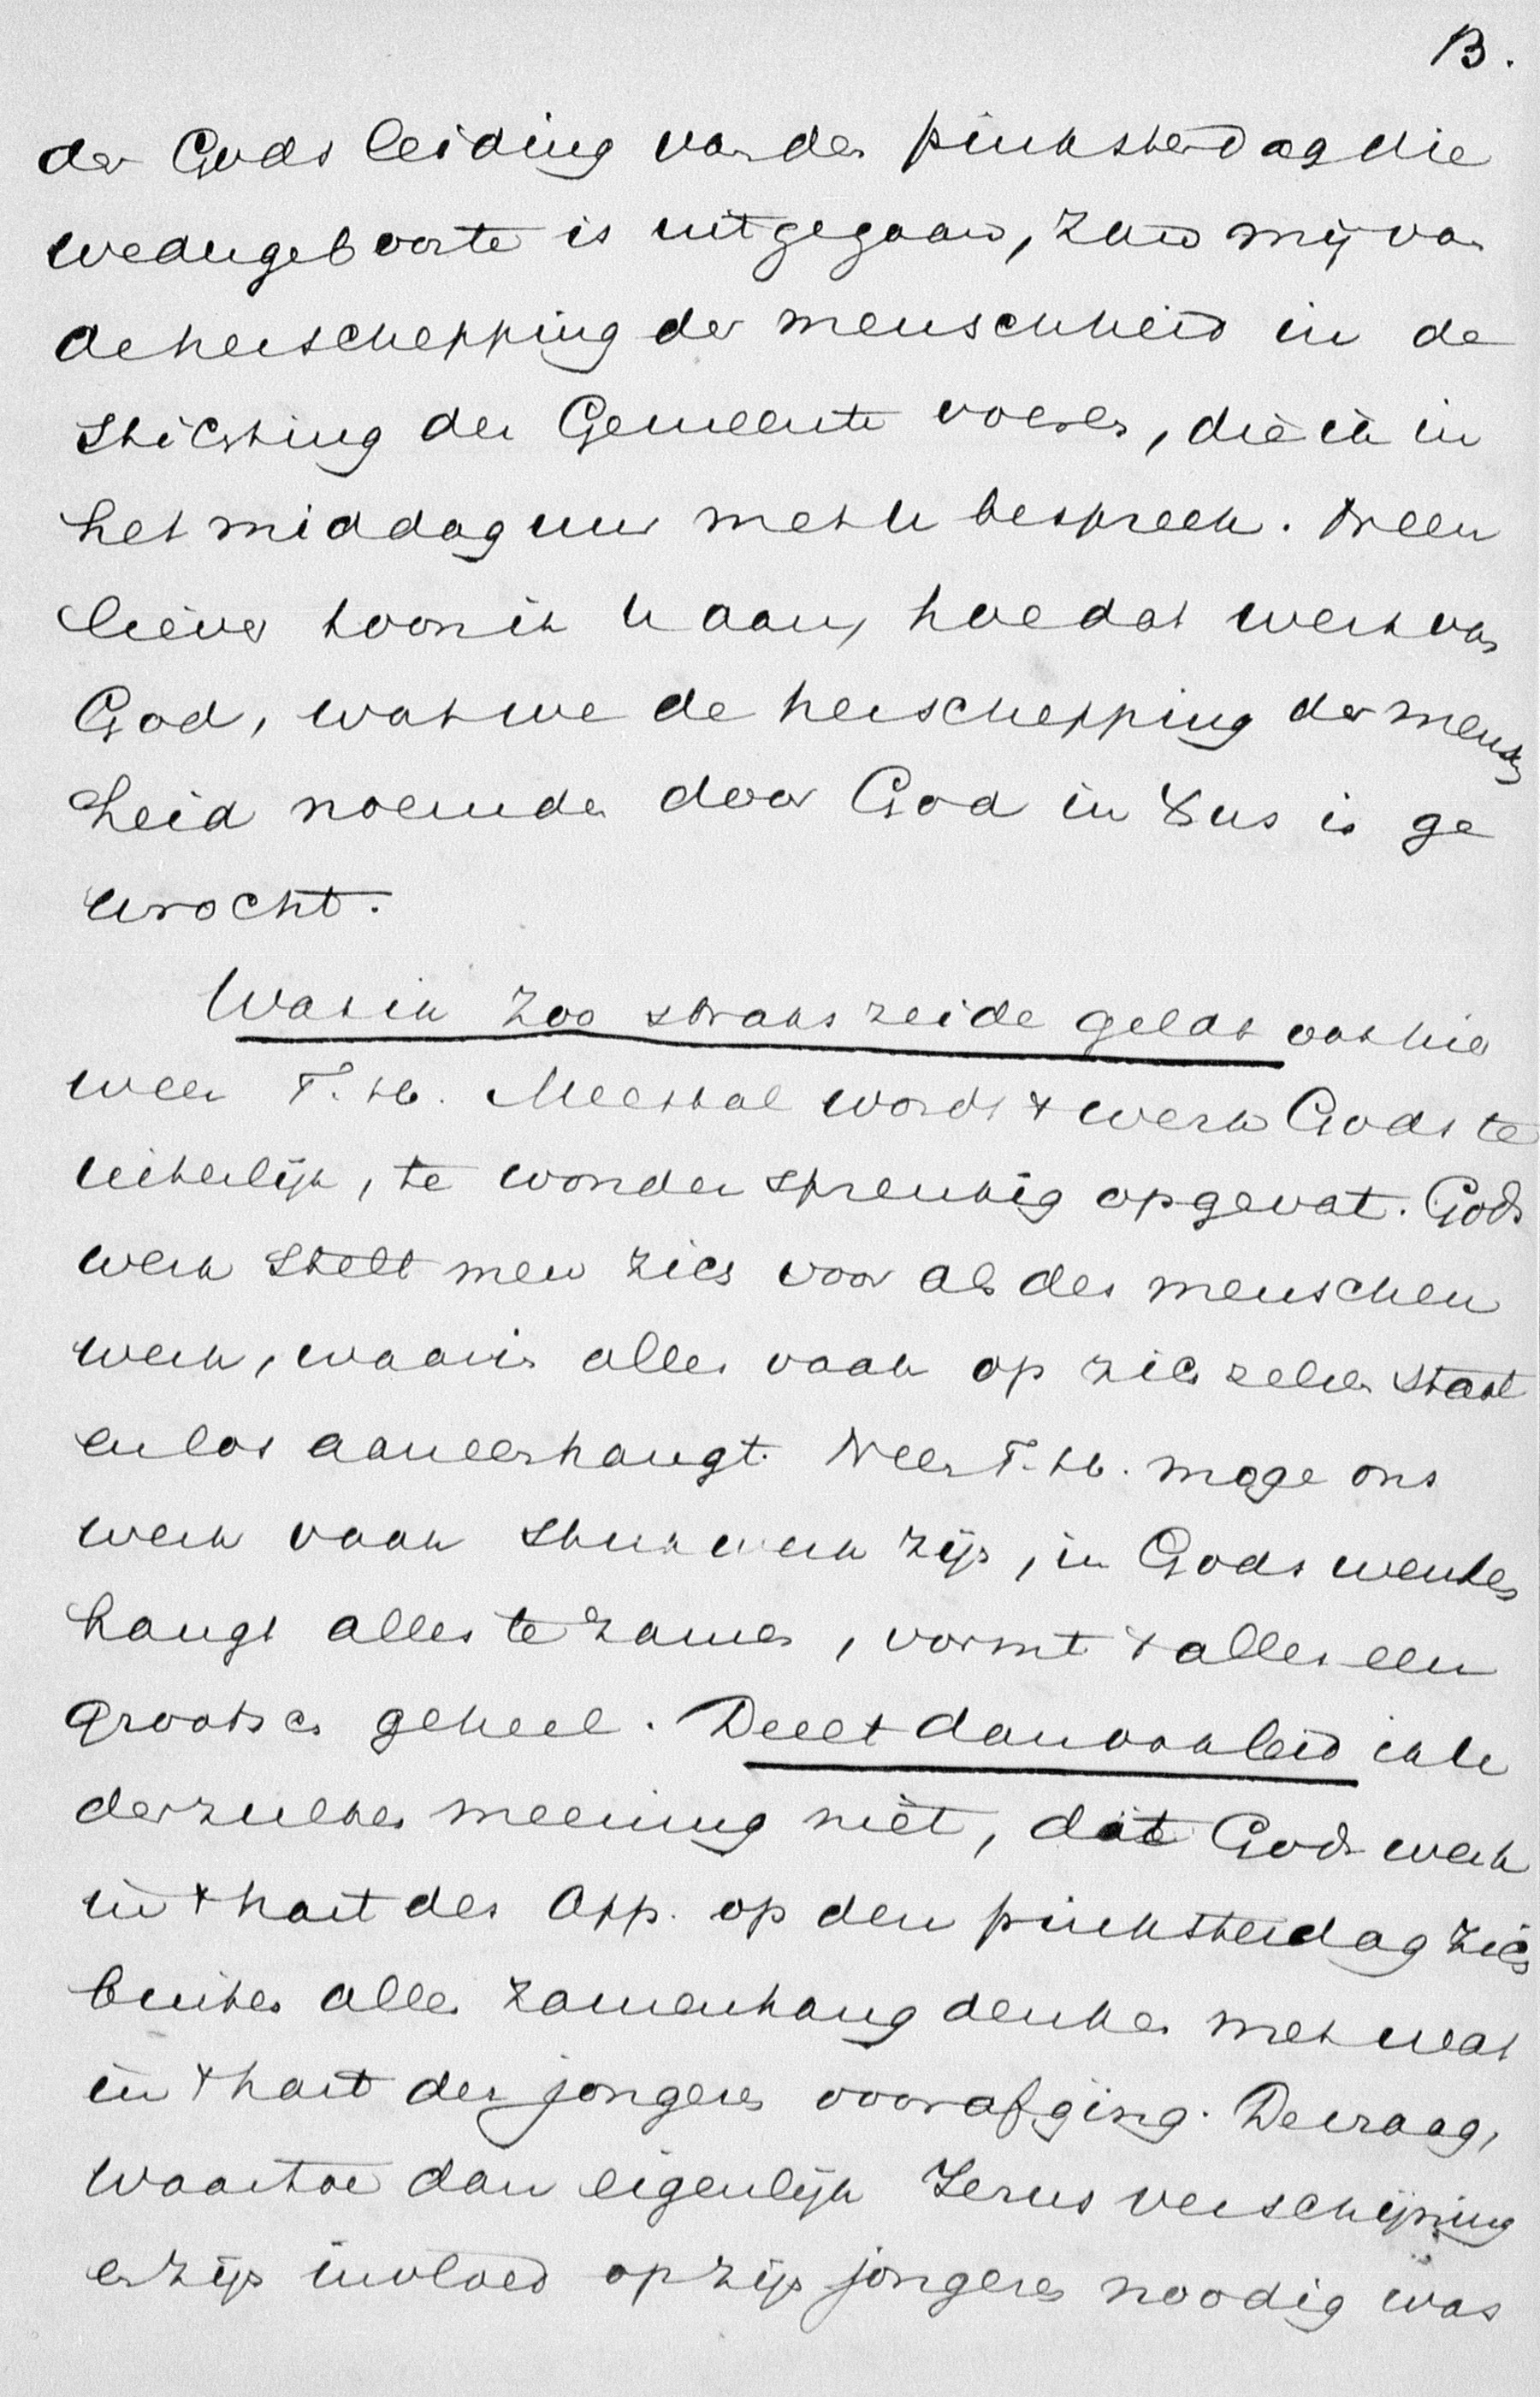 B.
der Gods leiding van den pinksterdag die
wedergeboorte is uitgegaan, zou mij van
de herschepping der menschheid in de
stichting der Gemeente voeren, die ik in
het middaguur met U bespreek. Neen
liever toon ik U aan, hoe dat werk van
God, wat we de herschepping der mensch
heid noemden door God in Xus is ge
wrocht.
Wat ik zoo straks zeide geldt ook hier
weer T. H. Meestal wordt 't werk Gods te
uiterlijk, te wonderspreukig opgevat. Gods
werk stelt men zich voor als des menschen
werk, waarin alles vaak op zich zelven staat
en los aaneenhangt. Neen T. H. moge ons
werk vaak stukwerk zijn, in Gods werken
hangt alles te zamen, vormt 't alles een
grootsch geheel. Deelt dan ook bid ik U
derzulken meening niet, dat Gods werk
in 't hart der App. op den pinksterdag zich
buiten allen zamenhang denken met wat
in 't hart der jongeren voorafging. De vraag,
waartoe dan eigenlijk Jezus verschijning
en zijn invloed op zijn jongeren noodig was